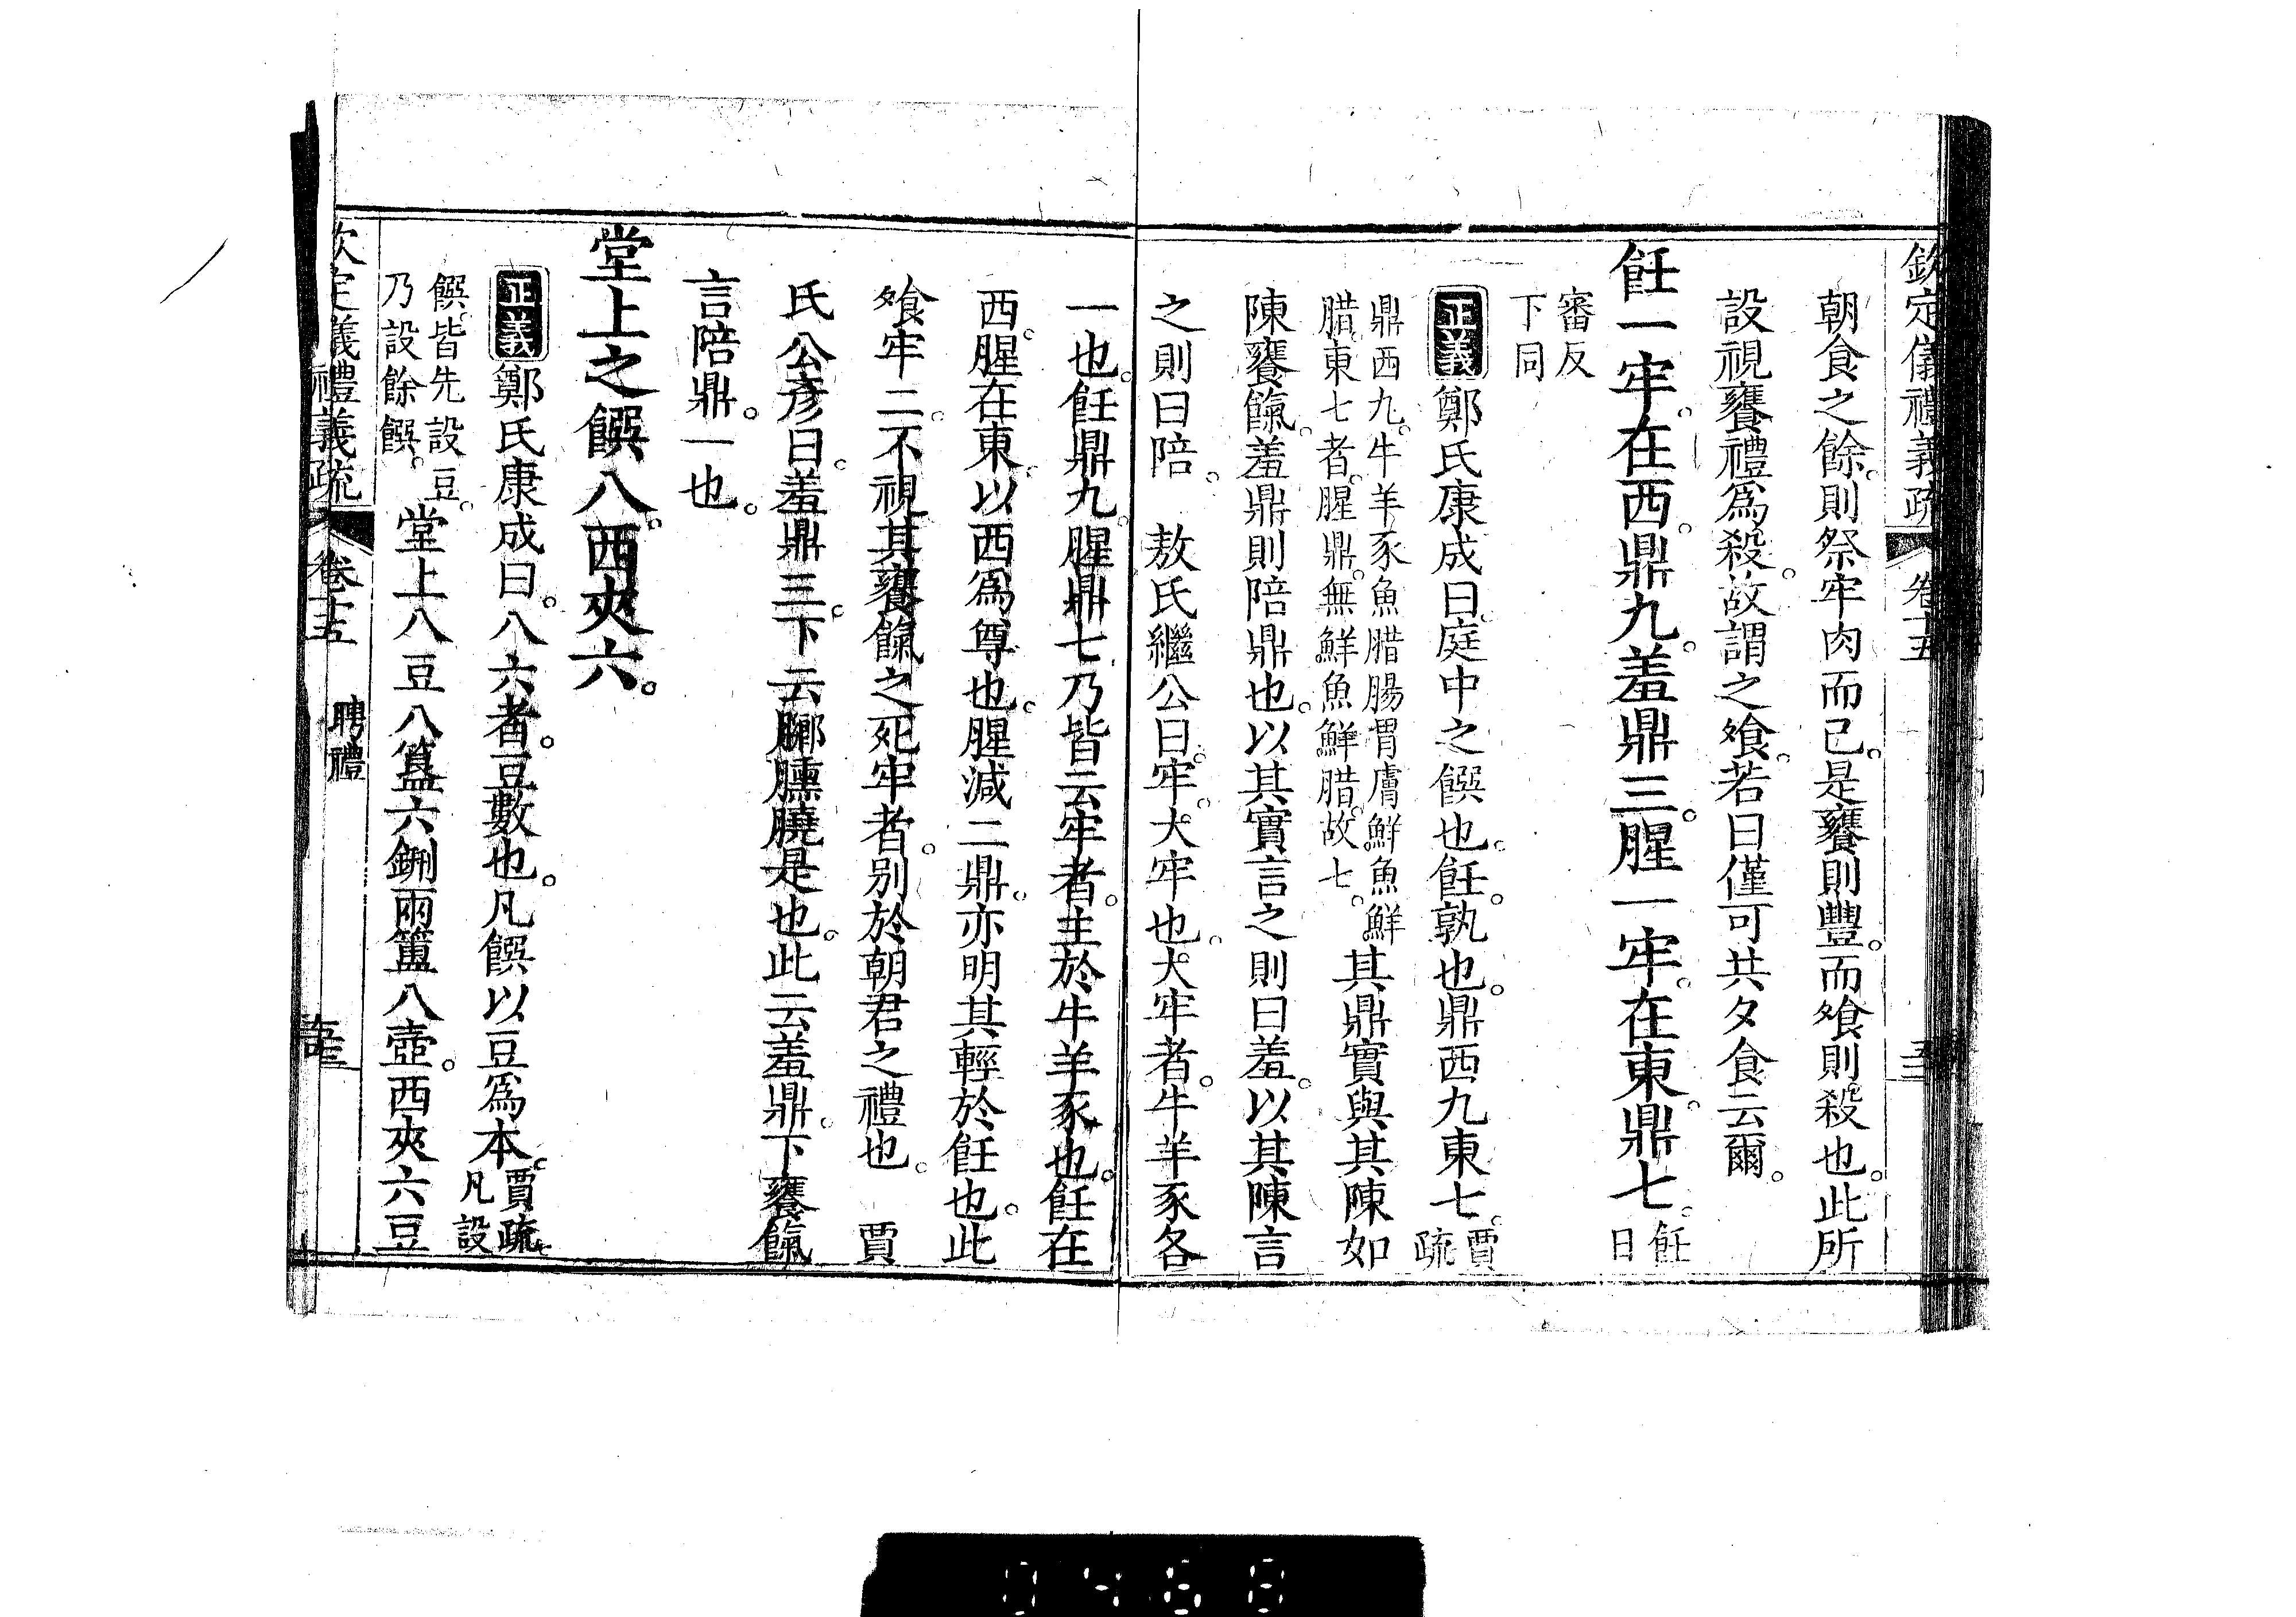 欽定儀禮義疏 卷十五
朝食之餘。則祭牢肉而已。是饔則豐。而飧則殺也。此所
設視饔禮爲殺。故謂之飧。若曰僅可共夕食云爾。
飪一牢。在西。鼎九。羞鼎三。腥一牢。在東。鼎七。飪日
審反下同
正義鄭氏康成曰。庭中之饌也。飪。孰也。鼎西九東七。賈疏
鼎西九。牛羊豕魚腊腸胃膚鮮魚鮮腊。東七者。腥鼎。無鮮魚鮮腊。故七。其鼎實與其陳如
陳饔餼。羞鼎則陪鼎也。以其實言之則曰羞。以其陳言
之則曰陪。 敖氏繼公曰。牢。大牢也。大牢者。牛羊豕各
一也。飪鼎九。腥鼎七。乃皆云牢者。主於牛羊豕也。飪在
西。腥在東。以西爲尊也。腥減二鼎。亦明其輕於飪也。此
飧牢二。不視其饔餼之死牢者。别於朝君之禮也。 賈
氏公彥曰。羞鼎三。下云膷臐膮是也。此云羞鼎。下饔餼
言陪鼎。一也。
堂上之饌八。西夾六。
正義鄭氏康成曰。八六者。豆數也。凡饌以豆爲本。賈疏凡設
饌。皆先設豆。乃設餘饌。堂上八豆八簋六鉶兩簠八壺。西夾六豆
欽定儀禮義疏 卷十五 聘禮